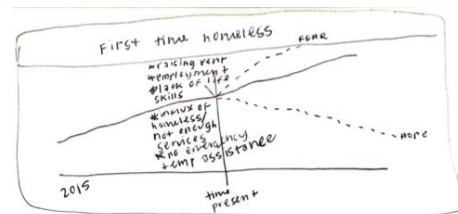 First time homeless
FEAR
*raising rent
*employment
*lack of life
skills
*influx of
homeless/
not enough
services
*no emergency
temp assistance
HOPE
2015
time
present